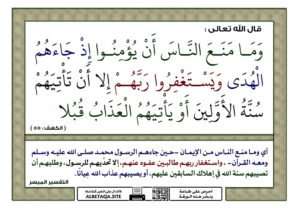 قال الله تعالى :
وَمَا مَنَعَ النَّاسَ أَنْ يُؤْمِنُوا إِذْ جَاءَهُمُ
الْهُدَى وَيَسْتَغْفِرُوا رَبَّهُمْ إِلَّا أَنْ تَأْتِيَهُمْ
سُنَّةُ الْأَوَّلِينَ أَوْ يَأْتِيَهُمُ الْعَذَابُ قُبُلًا
( الكهف : ٥٥ )
أي وما منع الناس من الإيمان -حين جاءهم الرسول محمد صلى الله عليه وسلم
ومعه القرآن-، واستغفار ربهم طالبين عفوه عنهم، إلا تحديهم للرسول، وطلبهم أن
تصيبهم سنة الله في إهلاك السابقين عليهم، أو يصيبهم عذاب الله عيانًا.
التفسير الميسر
ALBETAQA.SITE
احرص على طباعة
ونشر هذه الورقة